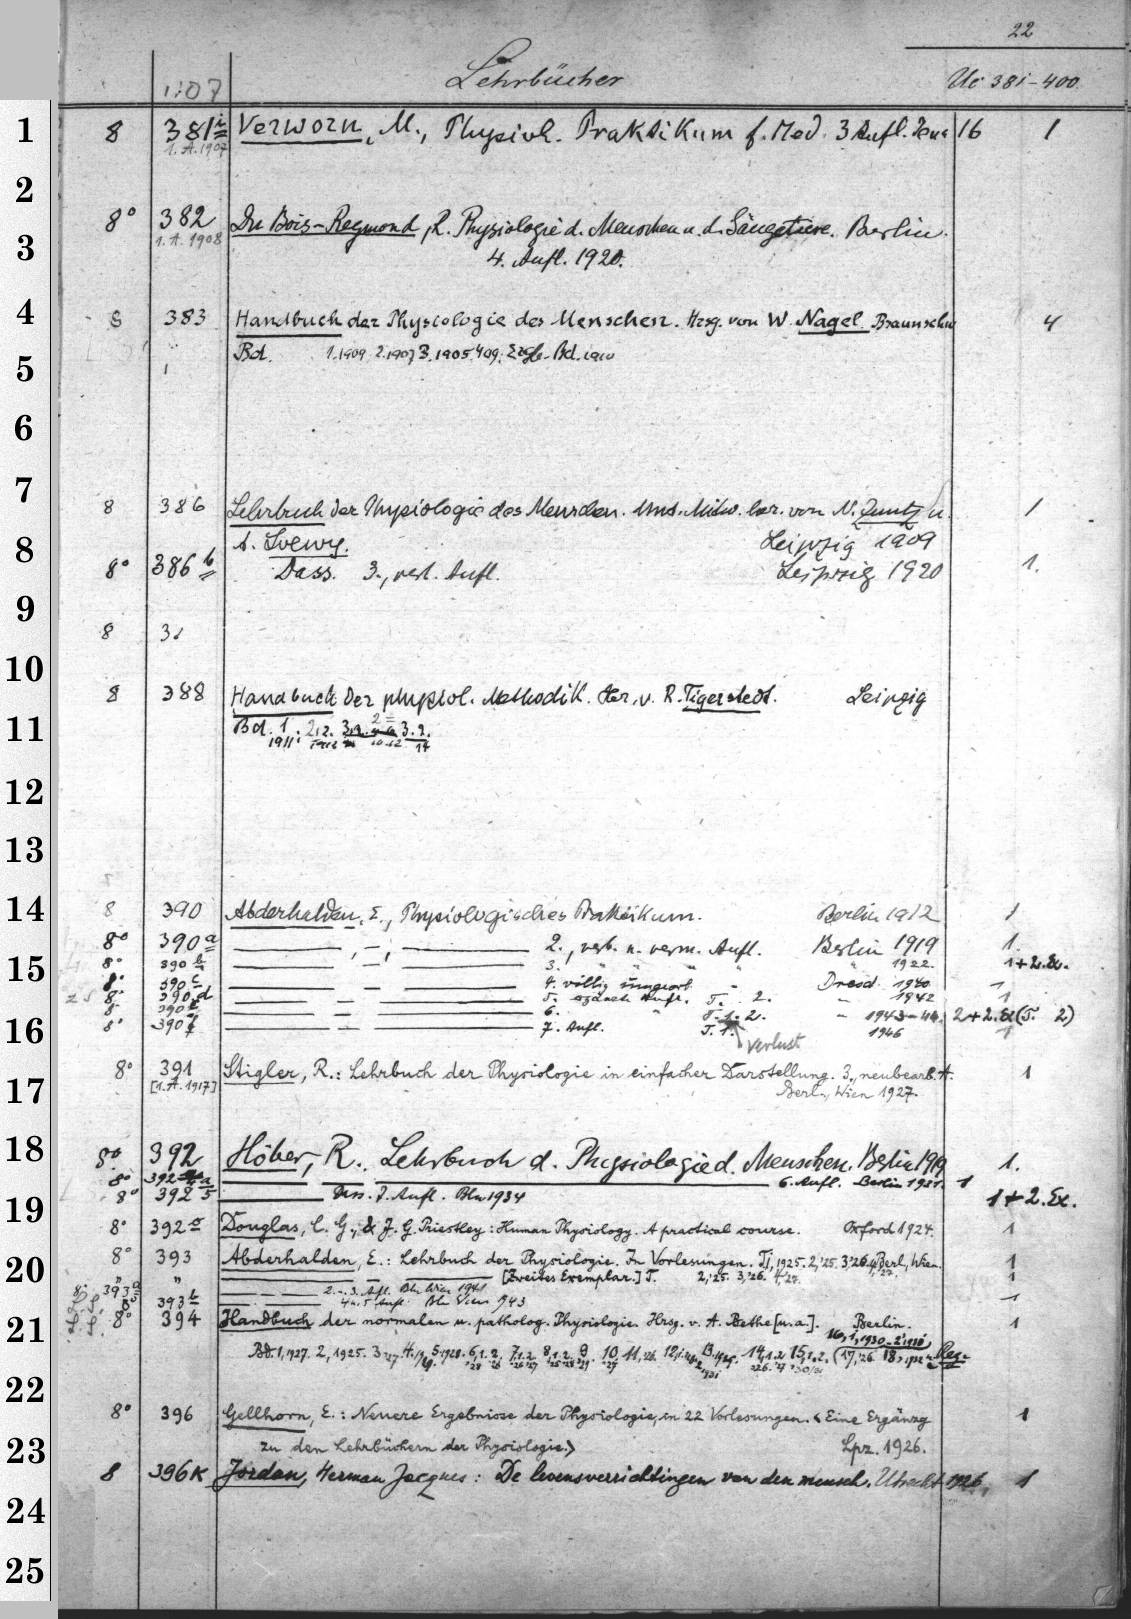 22
Lehrbücher Uc 381-400
1 8 381i Verworn, M., Physiol. Praktikum f. Med. 3 Aufl. Jena 16 1
1. A. 1907
2
8° 382 Du Bois-Reymond, R. Physiologie d. Menschen u. d. Säugetiere. Berlin.
1. A. 1908
3 4. Aufl. 1920.
4 8 383 Handbuch der Physiologie des Menschen. Hrsg. von W. Nagel Braunschw 4
5 Bd. 1.1909 2.1907 3.1905 4.09. Erg.-Bd. 1910
6
7 8 386 Lehrbuch der Physiologie des Menschen. Uns. Mitw. her. von N. Zuntz u. 1
8 A. Loewy. Leipzig 1909
8° 386 b Dass. 3., verb. Aufl. Leipzig 1920 1.
9
8
10
8 388 Handbuch der physiol. Methodik. Her. v. R. Tigerstedt. Leipzig
11 Bd. 1 2,2. 3.2.
1911
12
13
14 8 390 Abderhalden, E., Physiologisches Praktikum. Berlin 1912 1
8° 390 a — , — , — 2., verb. u. verm. Aufl. Berlin 1919 1.
15 8° 390 b 3. " " " " 1922. 1+2.Ex.
8° 390 c 4. völlig umgearb. Dresd. 1940 1
8° 390 d 5. Aufl. T. 2. 1942 1
8° 390 e 6. " T. 1. 2. 1943-44. 2+2.Ex(T. 2)
16 8° 390 f 7. Aufl. T. 1. 1946 1
Verlust
8° 391 Stigler, R.: Lehrbuch der Physiologie in einfacher Darstellung. 3., neubearb. A. 1
17 [1. A. 1917] Berl., Wien 1927.
18 8° 392 Höber, R. Lehrbuch d. Physiologie d. Menschen. Berlin 1919 1.
8° 392 a 6. Aufl. Berlin 1931. 1
19 8° 392 b Dass. 7. Aufl. Bln 1934 1+2.Ex.
8° 392 c Douglas, C. G., & J. G. Priestley: Human Physiology. A practical course. Oxford 1924. 1
8° 393 Abderhalden, E.: Lehrbuch der Physiologie. In Vorlesungen. T 1, 1925. 2,'25. 3,'26. 4,'27. Berl., Wien. 1
20 " " [Zweites Exemplar.] T. 2,'25. 3,'26. 4,'27. 1
393 a 2.-3. Aufl. Bln Wien 1941
8° 393 b 4. u. 5 Aufl. Bln Wien 943 1
21 8° 394 Handbuch der normalen u. patholog. Physiologie. Hrsg. v. A. Bethe [u.a.]. Berlin. 1
16,1,1930
Bd. 1,1927. 2,1925. 3 '27
22
8° 396 Gellhorn, E.: Neuere Ergebnisse der Physiologie, in 22 Vorlesungen. <Eine Ergänzg 1
23 zu den Lehrbüchern der Physiologie.> Lpz. 1926.
8 396K Jordan, Herman Jacques: De levensverrichtingen van den mensch. Utrecht 1926, 1
24
25